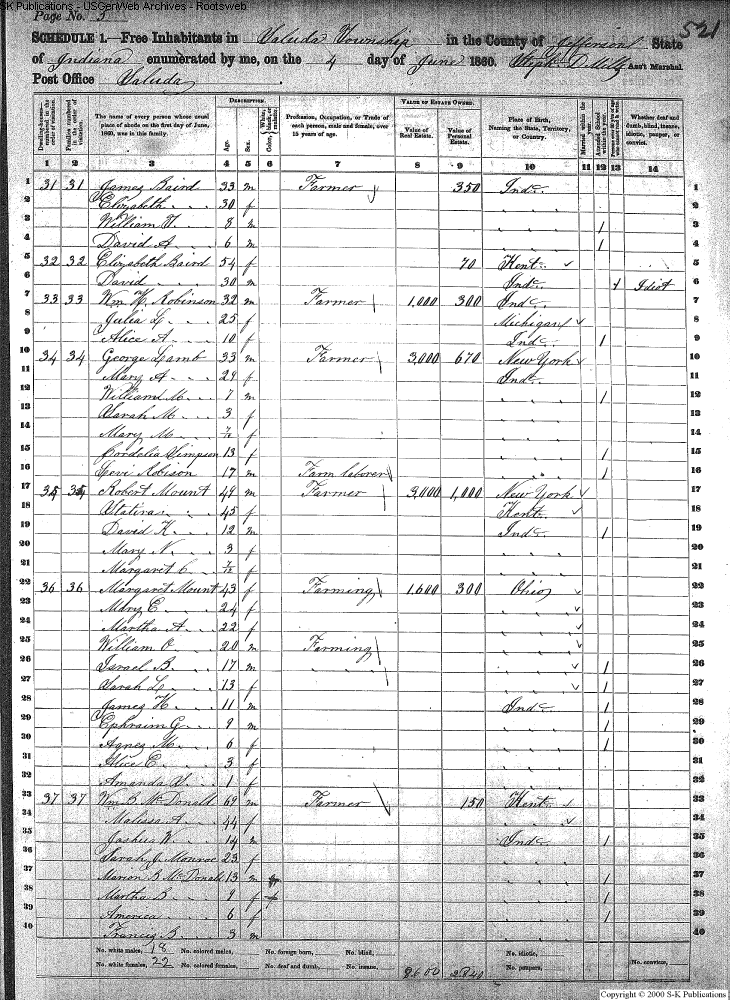 S-K Publications - USGenWeb Archives - Rootsweb
Page No. 5
521
SCHEDULE 1.—Free Inhabitants in Saluda Township in the County of Jefferson State
of Indiana enumerated by me, on the 4 day of June 1860. Ass't Marshal.
Post Office Saluda
DESCRIPTION. VALUE OF ESTATE OWNED.
Dwelling-houses—numbered in the order of visitation. Families numbered in the order of visitation. The name of every person whose usual place of abode on the first day of June, 1860, was in this family. Age. Sex. Color, White, black, or mulatto. Profession, Occupation, or Trade of each person, male and female, over 15 years of age. Value of Real Estate. Value of Personal Estate. Place of Birth, Naming the State, Territory, or Country. Married within the year. Attended School within the year. Whether deaf and dumb, blind, insane, idiotic, pauper, or convict.
1 2 3 4 5 6 7 8 9 10 11 12 13 14
1 31 31 James Baird 33 m Farmer 350 Inda 1
2 Elizabeth 30 f " " 2
3 William T. 8 m " " / 3
4 David A 6 m " " / 4
5 32 32 Elizabeth Baird 54 f 70 Kent. 5
6 David 30 m Inda Idiot 6
7 33 33 Wm H. Robinson 32 m Farmer 1,000 300 Inda 7
8 Julia L. 25 f Michigan 8
9 Alice A. 10 f Inda / 9
10 34 34 George Lamb 33 m Farmer 3,000 670 New York 10
11 Mary A 29 f Inda 11
12 William M. 7 m " " / 12
13 Sarah M. 3 f " " 13
14 Mary M. f " " 14
15 Cordelia Simpson 13 f " " / 15
16 Levi Robison 17 m Farm laborer " " / 16
17 35 35 Robert Mount 49 m Farmer 3,000 1,000 New York 17
18 Statira 45 f Kent. 18
19 David K. 12 m Inda / 19
20 Mary N. 3 f " " 20
21 Margaret C. f " " 21
22 36 36 Margaret Mount 43 f Farming 1,600 300 Ohio 22
23 Mary E. 24 f " " 23
24 Martha A. 22 f " " 24
25 William O. 20 m Farming " " 25
26 Israel B. 17 m " " " " / 26
27 Sarah L. 13 f " " / 27
28 James H. 11 m Inda / 28
29 Ephraim G. 9 m " " / 29
30 Agnes M. 6 f " " / 30
31 Alice E. 3 f " " 31
32 Amanda S. 1 f " " 32
33 37 37 Wm B. McDonald 69 m Farmer 150 Kent. 33
34 Malissa A. 44 f " " 34
35 Joshua W. 14 m Inda / 35
36 Sarah J. Monroe 23 f " " 36
37 Marion B McDonald 13 m " " / 37
38 Martha B. 9 f " " / 38
39 America 6 f " " / 39
40 Francis B 3 m " " 40
No. white males, 18 No. colored males, No. foreign born, No. blind, No. idiotic,
No. white females, 22 No. colored females, No. deaf and dumb, No. insane, 8600 2840 No. paupers, No. convicts,
Copyright © 2000 S-K Publications